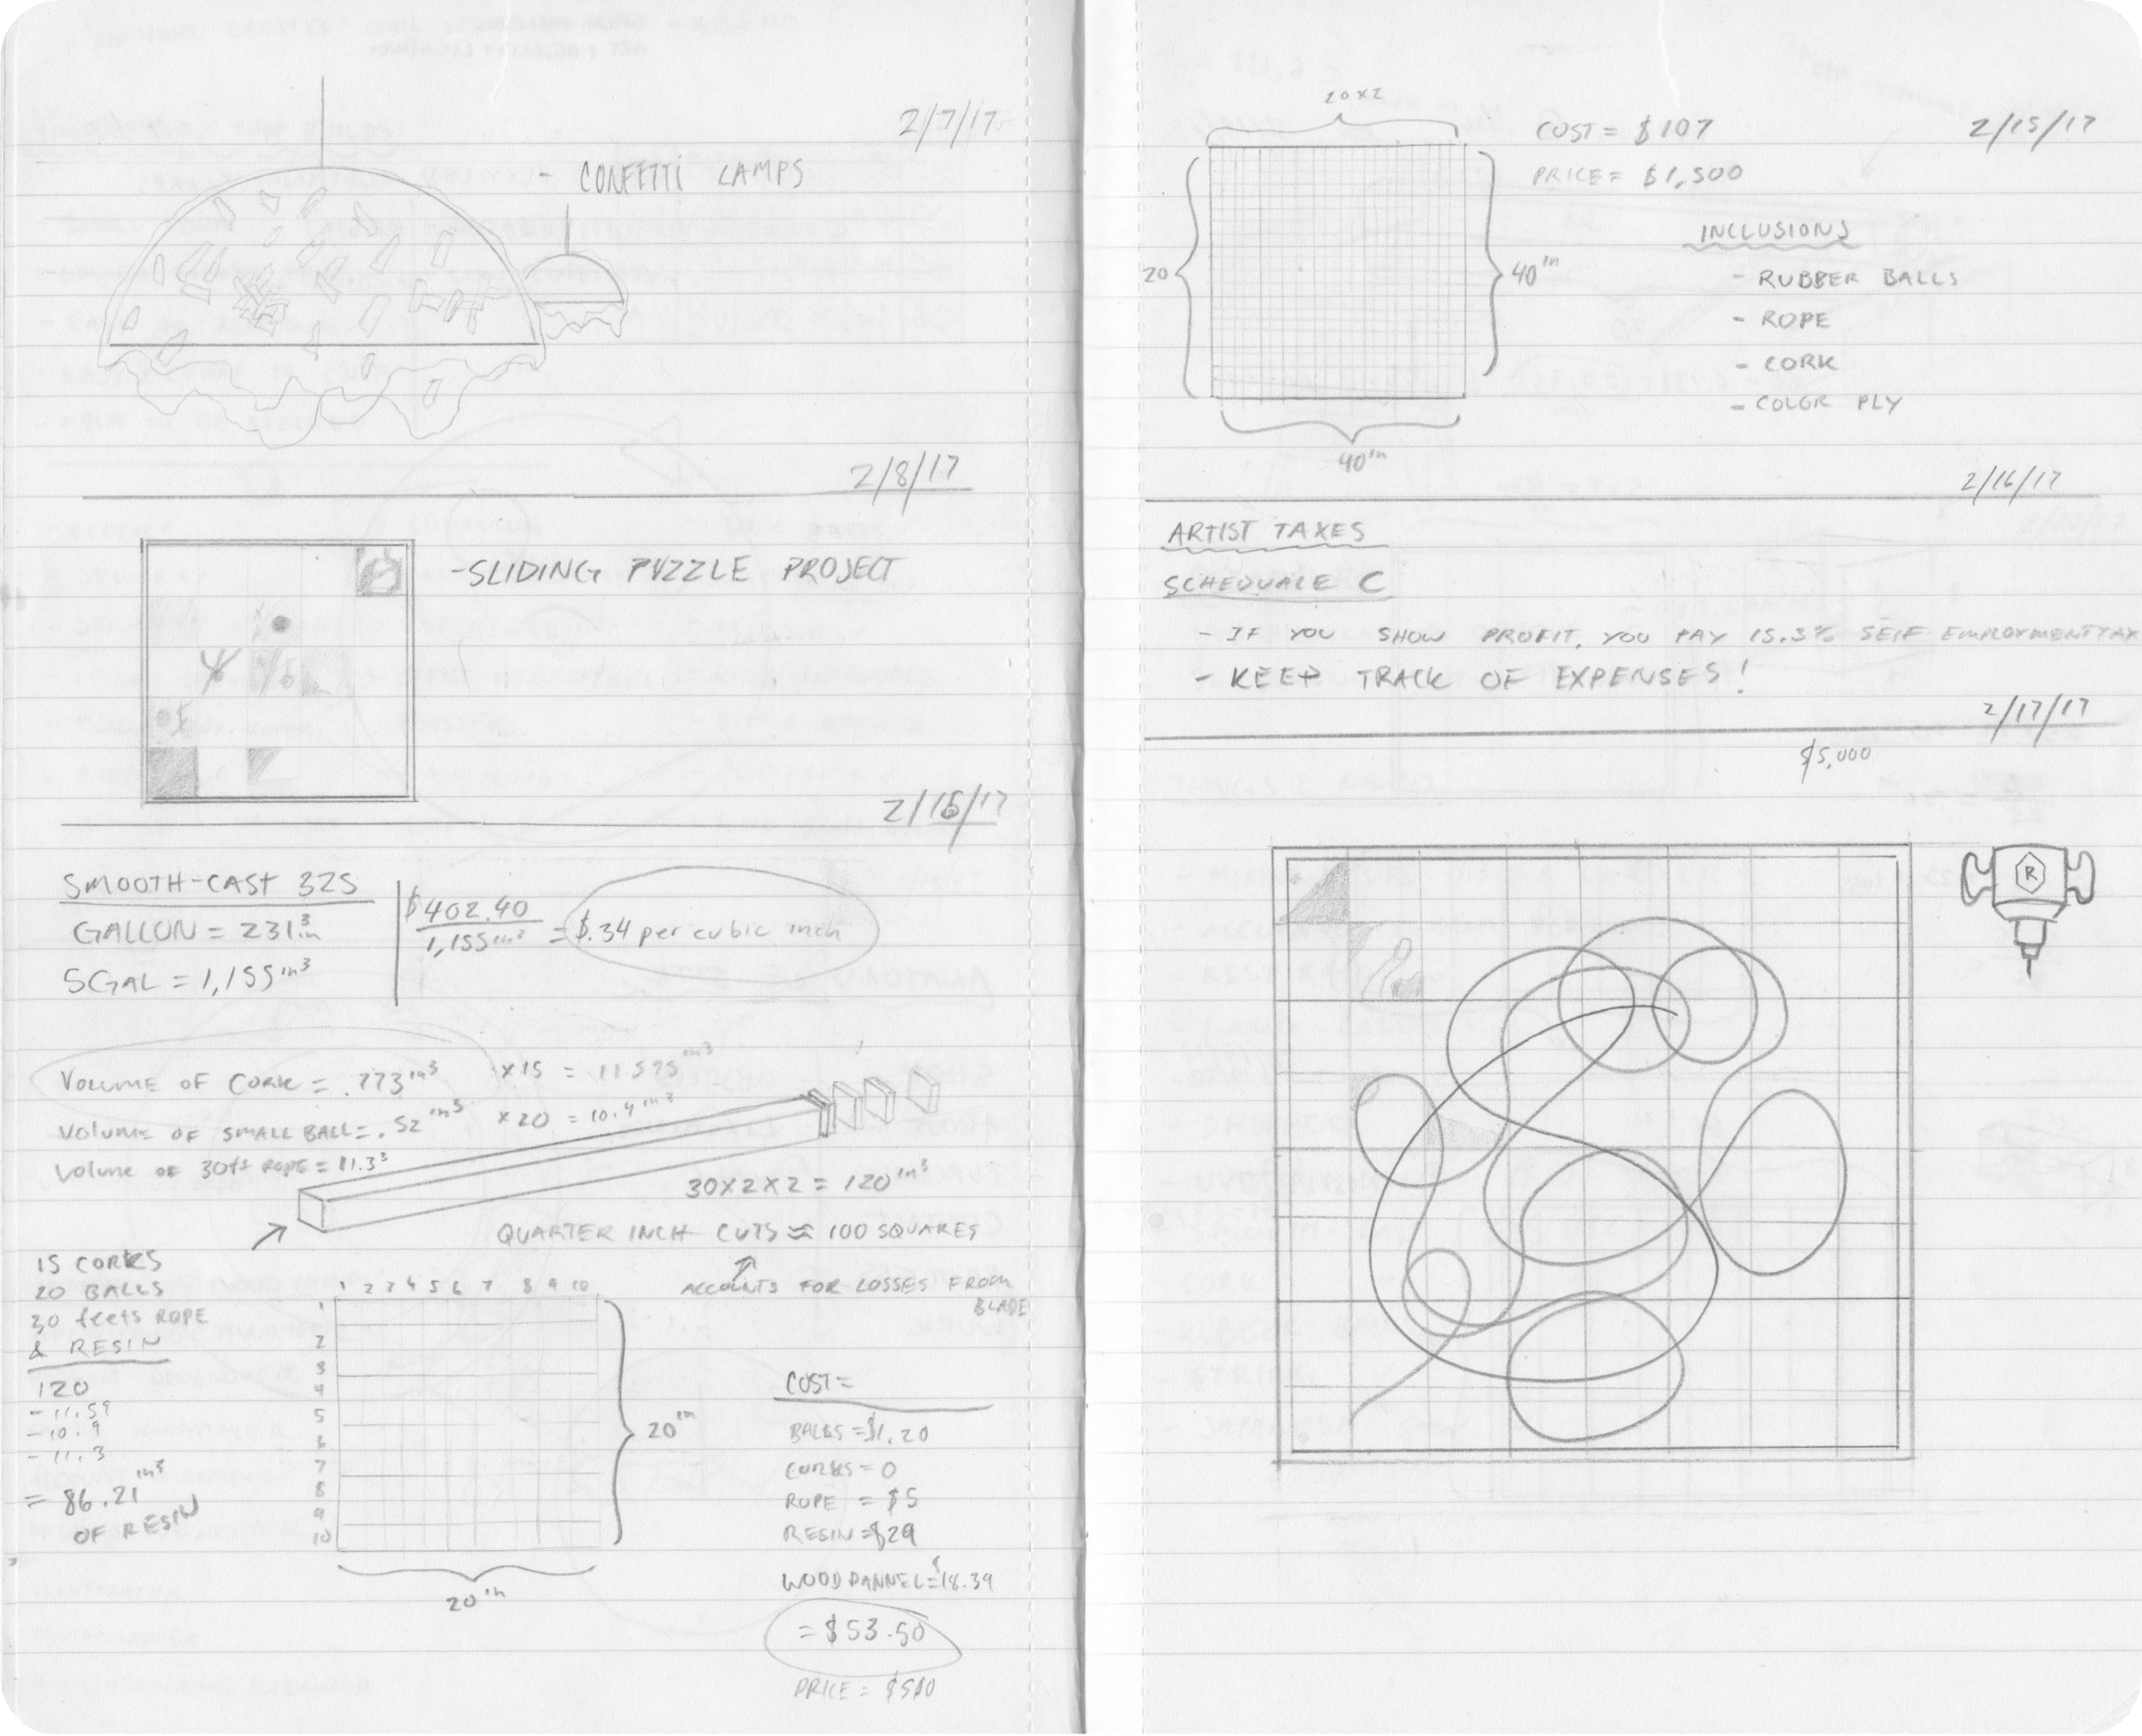 2/7/17
- CONFETTI LAMPS
2/8/17
-SLIDING PUZZLE PROJECT
2/15/17
SMOOTH-CAST 325
GALLON = 231in³
5GAL = 1,155in³
$402.40
1,155in³
= $.34 per cubic inch
VOLUME OF CORK = .773in³ x15 = 11.595in³
VOLUME OF SMALL BALL = .52in³ x20 = 10.4in³
VOLUME OF 30ft ROPE = 11.3³
30x2x2 = 120in³
QUARTER INCH CUTS ≈ 100 SQUARES
ACCOUNTS FOR LOSSES FROM
BLADE
15 CORKS
20 BALLS
30 feets ROPE
& RESIN
120
- 11.59
- 10.9
- 11.3
= 86.21in³
OF RESIN
1 2 3 4 5 6 7 8 9 10
1
2
3
4
5
6
7
8
9
10
20in
20in
COST =
BALLS = $1.20
CORKS = 0
ROPE = $5
RESIN = $29
WOOD PANNEL = $18.39
= $53.50
PRICE = $500
2/15/17
20x2
20
40in
40in
COST = $107
PRICE = $1,500
INCLUSIONS
- RUBBER BALLS
- ROPE
- CORK
- COLOR PLY
2/16/17
ARTIST TAXES
SCHEDUALE C
- IF YOU SHOW PROFIT, YOU PAY 15.3% SELF EMPLOYMENT TAX
- KEEP TRACK OF EXPENSES!
2/17/17
$5,000
R